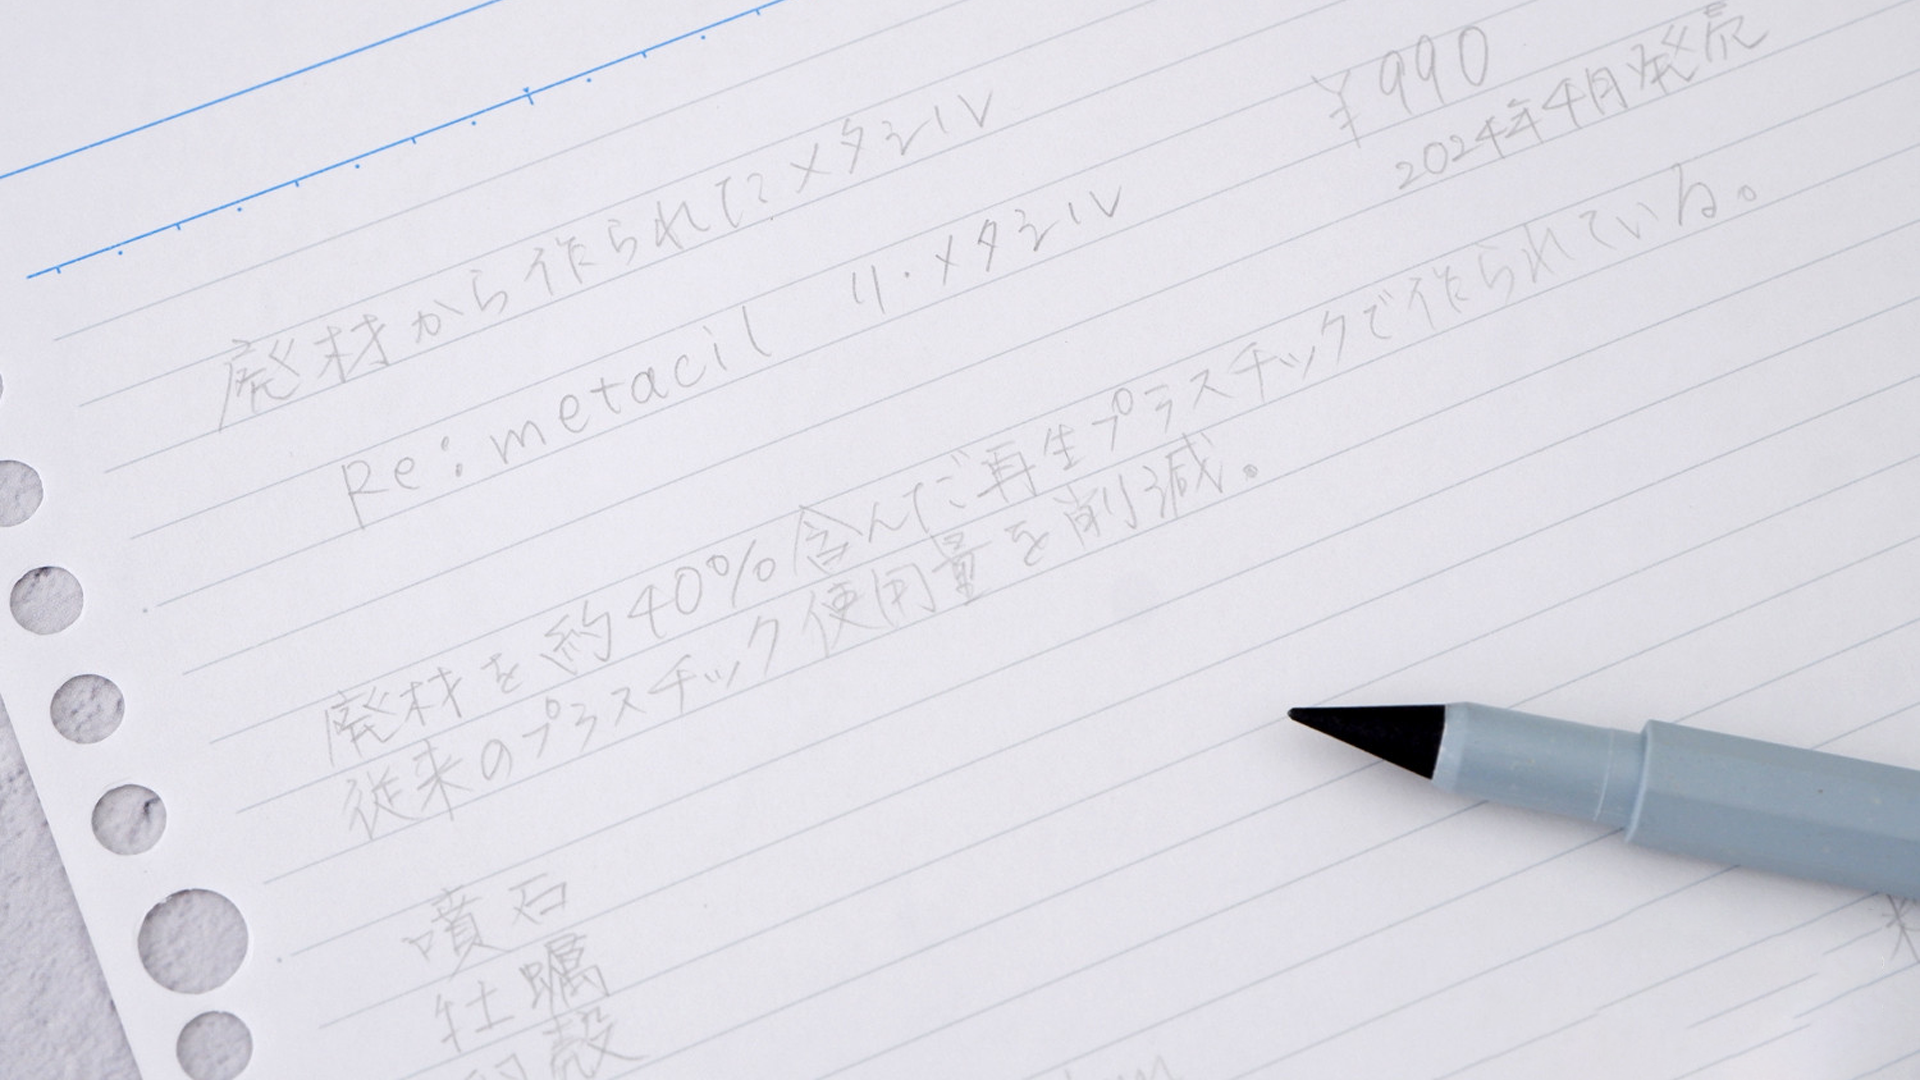 廃材から作られたメタシル
¥990
Re:metacil リ・メタシル
2024年4月発売
廃材を約40%含んだ再生プラスチックで作られている。
従来のプラスチック使用量を削減。
噴石
牡蠣